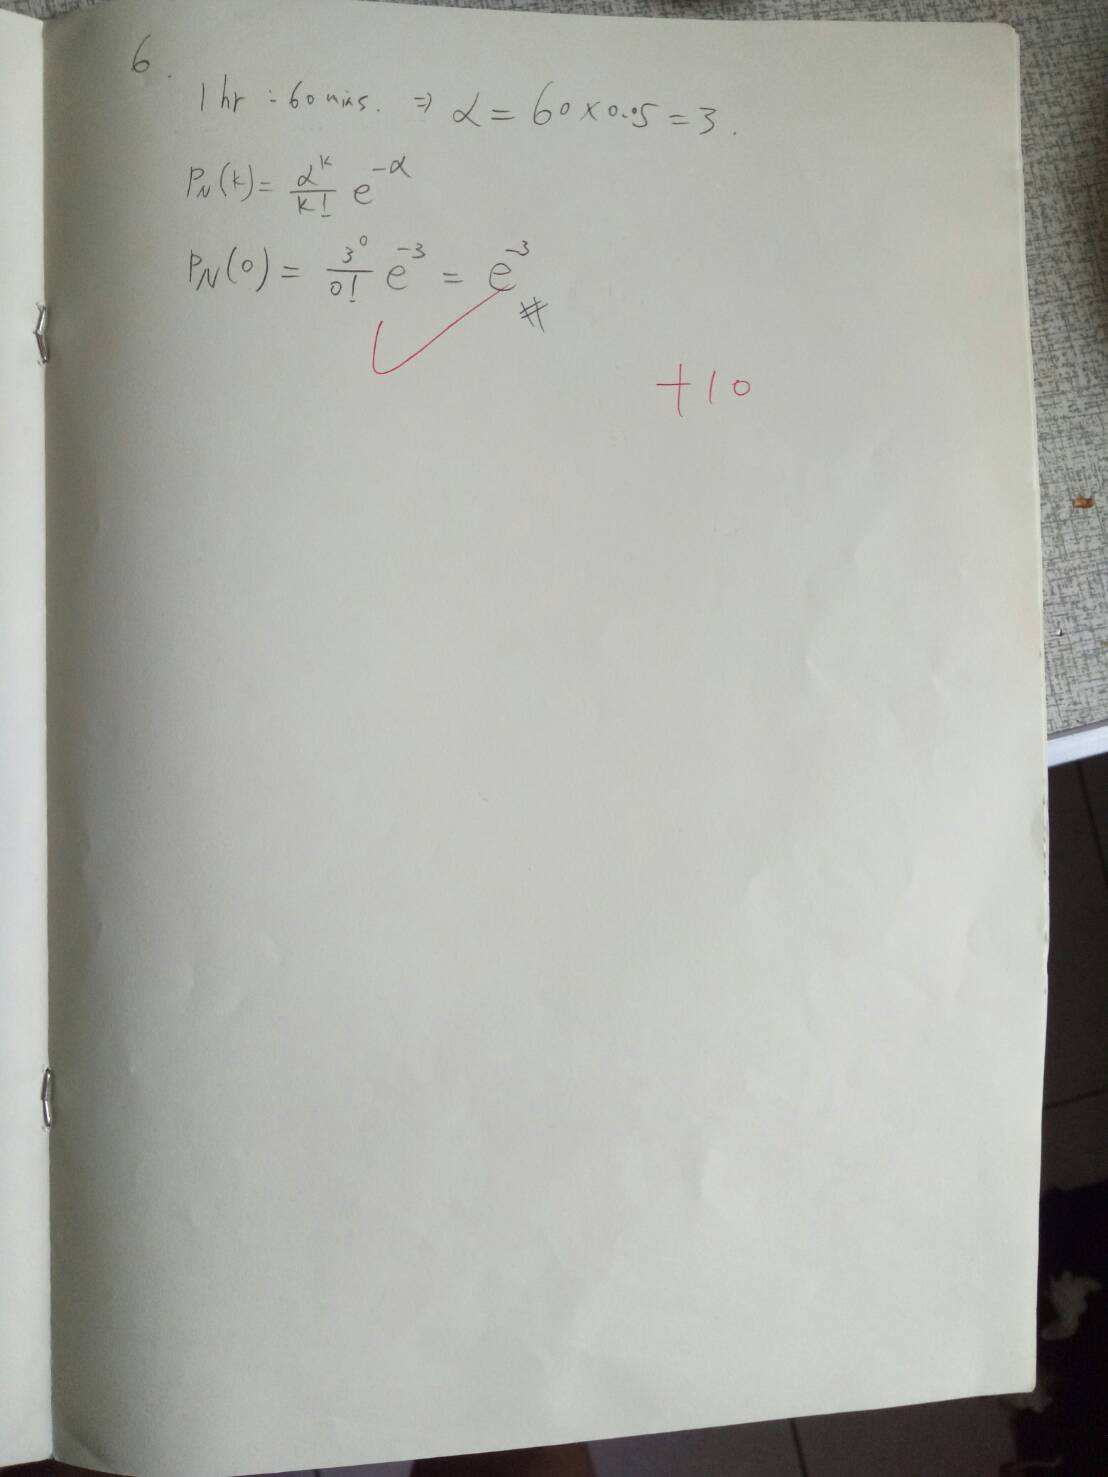 6.
1 hr = 60 mins. ⇒ α = 60 × 0.05 = 3.
P_N(k) = α^k / k! e^{-α}
P_N(0) = 3^0 / 0! e^{-3} = e^{-3} #
+10